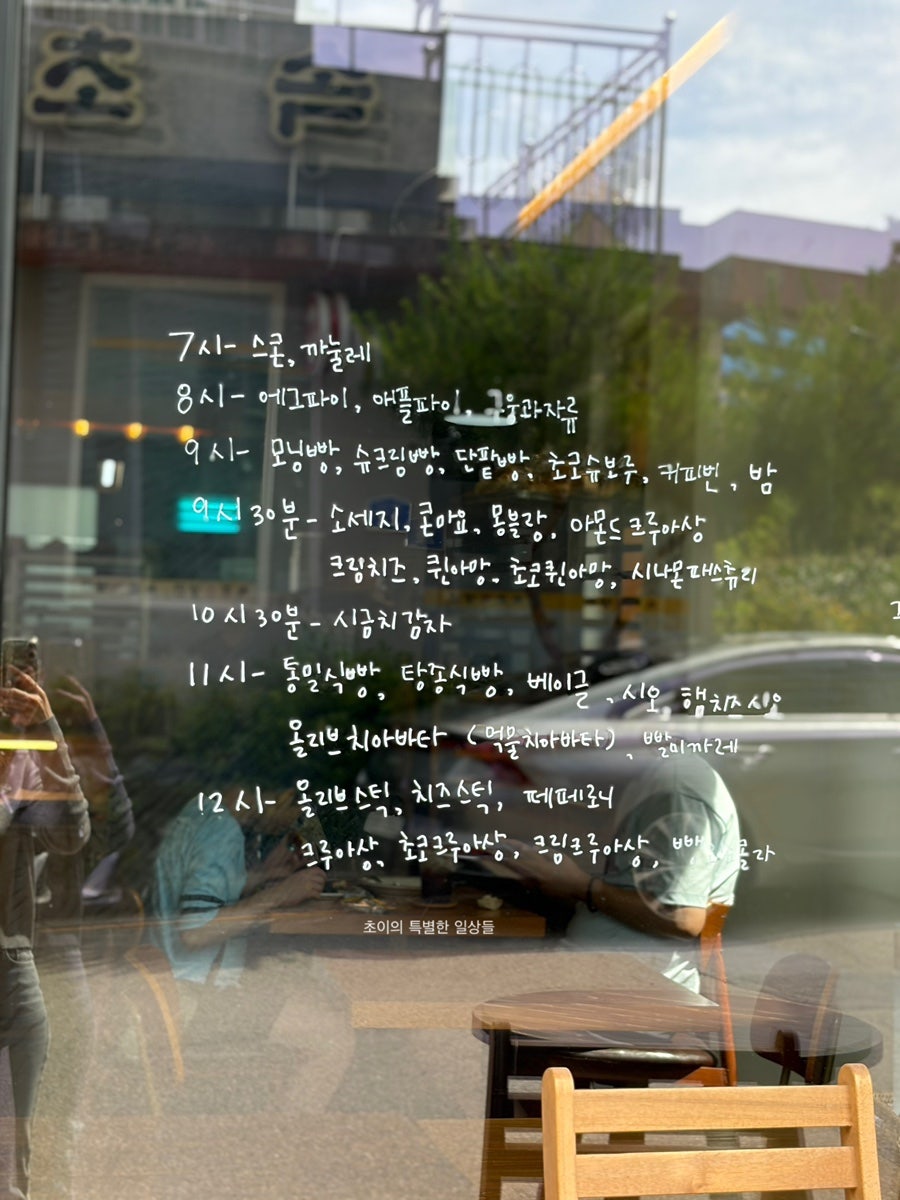 초
7시- 스콘, 까눌레
8시- 에그파이, 애플파이, 구움과자류
9시- 모닝빵, 슈크림빵, 단팥빵, 초코슈보루, 커피번, 밤
9시30분- 소세지, 콘마요, 몽블랑, 아몬드크루아상
크림치즈, 퀸아망, 초코퀸아망, 시나몬패스츄리
10시30분- 시금치감자
11시- 통밀식빵, 탕종식빵, 베이글, 시오, 햄치즈시오
올리브치아바타 (먹물치아바타), 빨미까레
12시- 올리브스틱, 치즈스틱, 페페로니
크루아상, 초코크루아상, 크림크루아상,
초이의 특별한 일상들